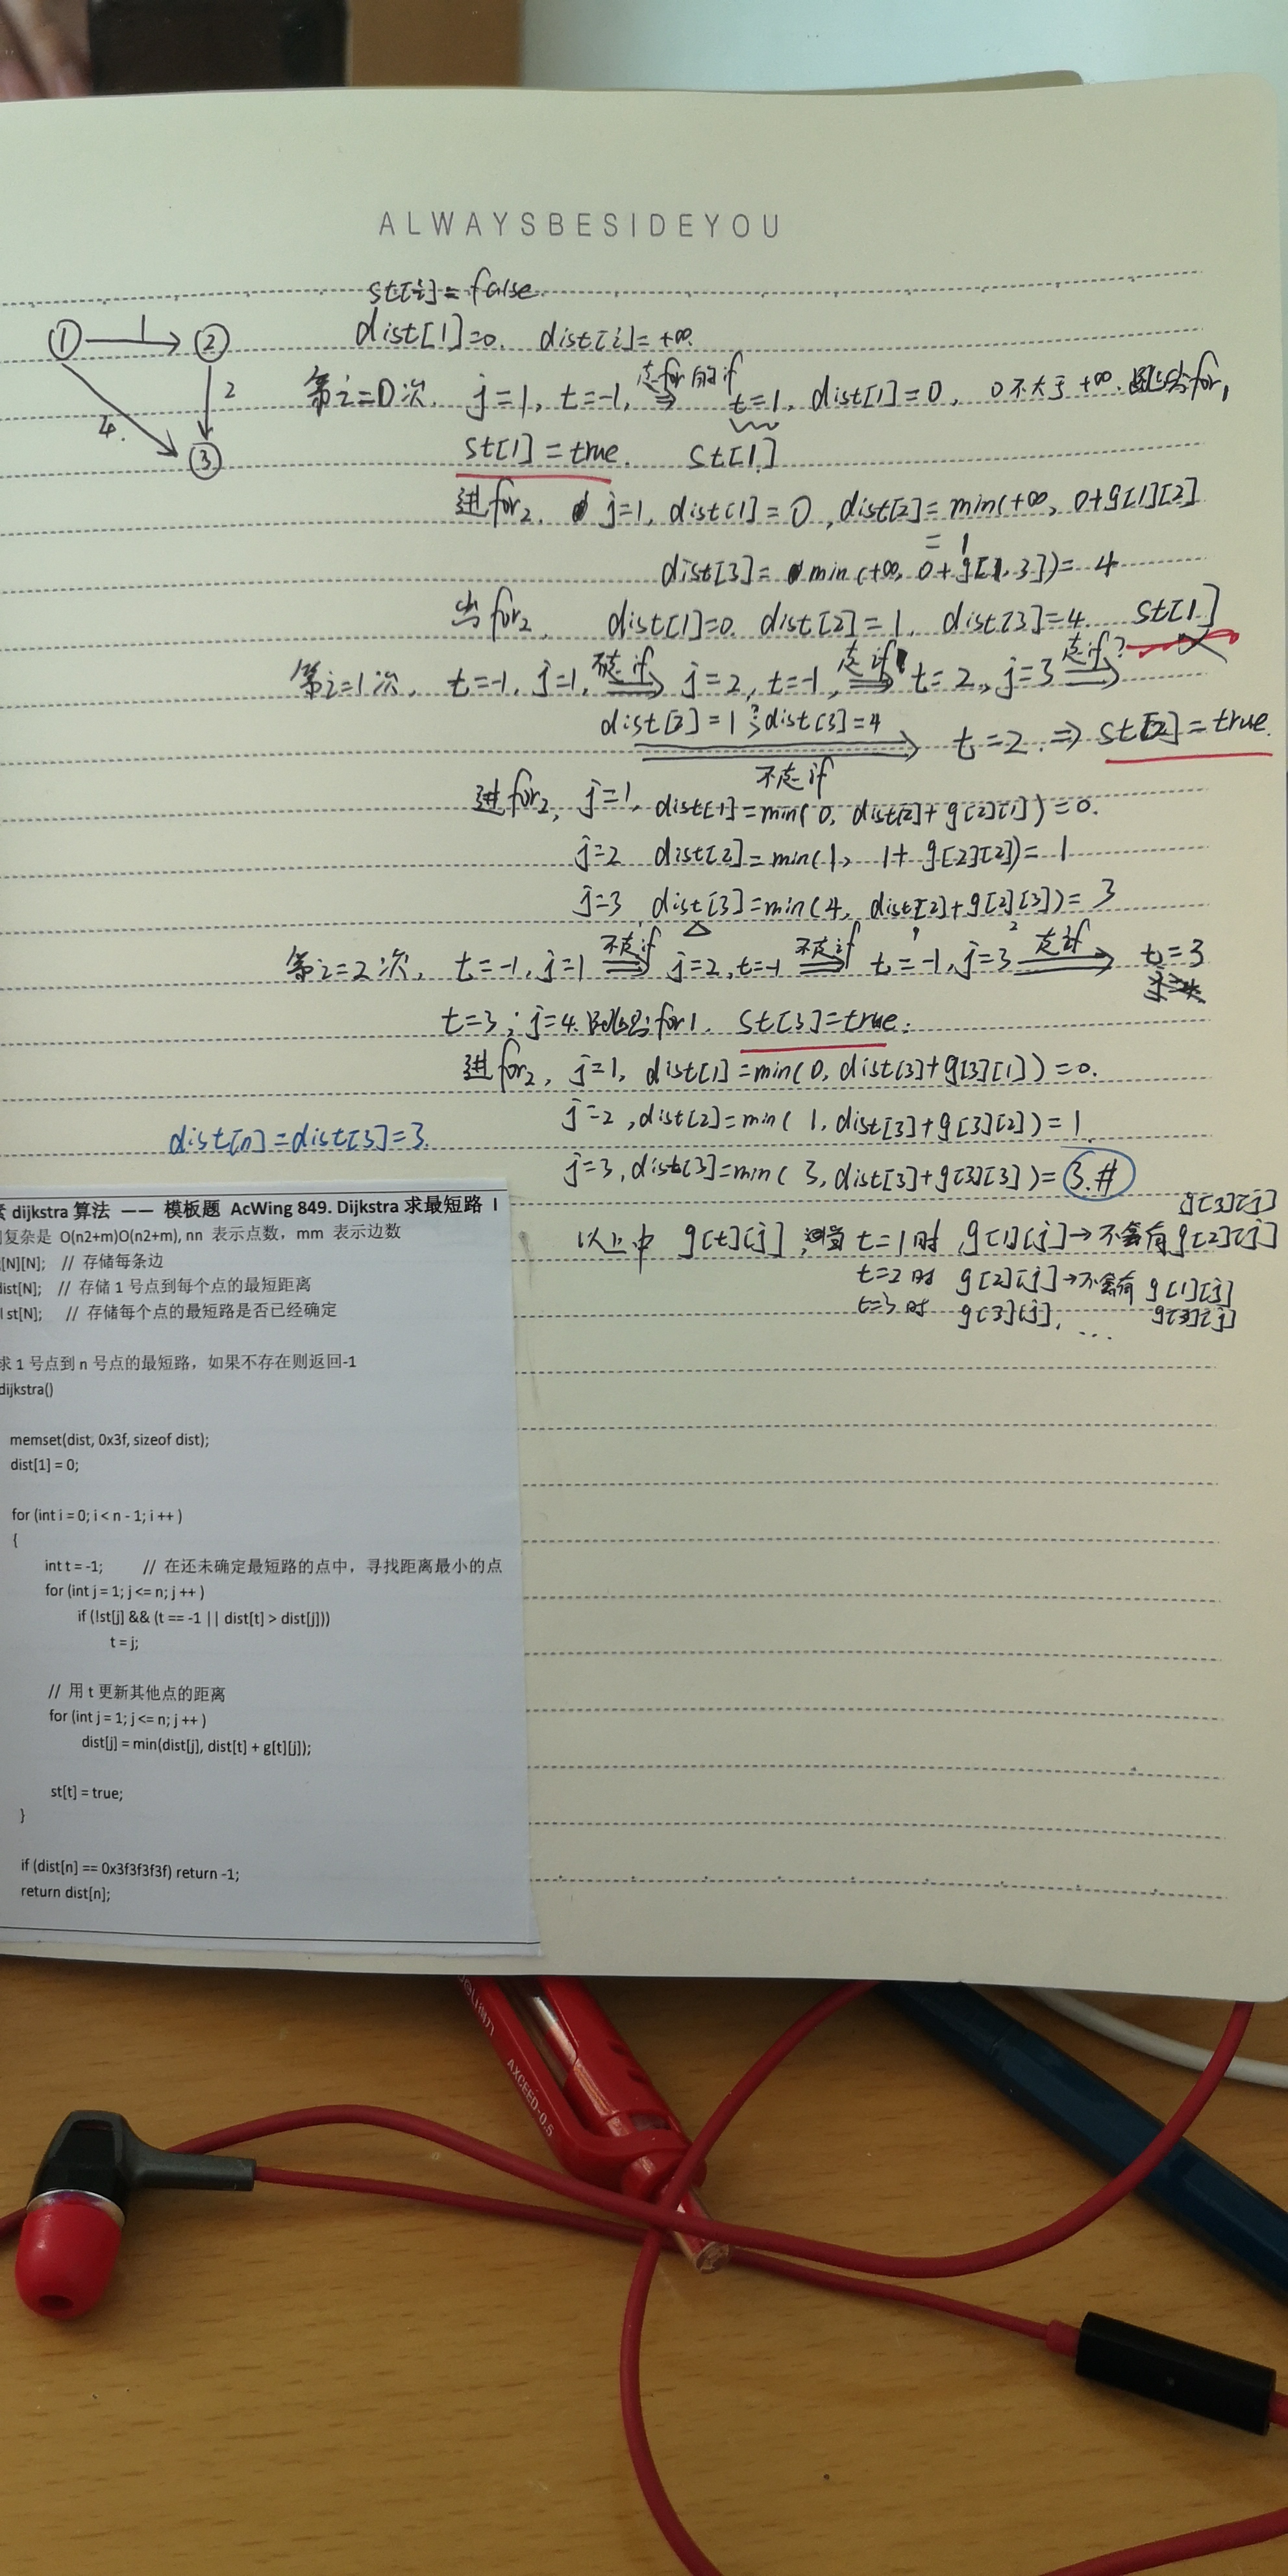 ALWAYSBESIDEYOU
st[i]=false
dist[1]=0. dist[i]=+∞
① 1 ② 2 4. ③
第i=0次. j=1, t=-1, 走for的if ⇒ t=1, dist[1]=0, 0不大于+∞. for,
st[1]=true. st[1]
进for2. j=1, dist[1]=0, dist[2]=min(+∞, 0+g[1][2]
=1
dist[3]=min(+∞, 0+g[1,3])=4
当for2, dist[1]=0. dist[2]=1, dist[3]=4. st[1]
第i=1次, t=-1, j=1, 不走if ⇒ j=2, t=-1, 走if ⇒ t=2, j=3 走if? ⇒
dist[2]=1 dist[3]=4 不走if ⇒ t=2. ⇒ st[2]=true.
进for2, j=1, dist[1]=min(0, dist[2]+g[2][1])=0.
j=2 dist[2]=min(1, 1+g[2][2])=1
j=3 dist[3]=min(4, dist[2]+g[2][3])=3
第i=2次, t=-1, j=1 不走if ⇒ j=2, t=-1 不走if ⇒ t=-1, j=3 走if ⇒ t=3
t=3; j=4. for1. st[3]=true.
进for2, j=1, dist[1]=min(0, dist[3]+g[3][1])=0.
j=2, dist[2]=min(1, dist[3]+g[3][2])=1
dist[n]=dist[3]=3.
j=3, dist[3]=min(3, dist[3]+g[3][3])=3.#
g[3][j]
以上中 g[t][j], 当t=1时, g[1][j]→不会有g[2][j]
t=2时 g[2][j]→不会有 g[1][j]
t=3时 g[3][j], ... g[3][j]
dijkstra 算法 —— 模板题 AcWing 849. Dijkstra 求最短路 I
复杂是 O(n2+m)O(n2+m), nn 表示点数，mm 表示边数
[N][N]; // 存储每条边
dist[N]; // 存储 1 号点到每个点的最短距离
l st[N]; // 存储每个点的最短路是否已经确定
求 1 号点到 n 号点的最短路，如果不存在则返回-1
dijkstra()
memset(dist, 0x3f, sizeof dist);
dist[1] = 0;
for (int i = 0; i < n - 1; i ++ )
{
int t = -1; // 在还未确定最短路的点中，寻找距离最小的点
for (int j = 1; j <= n; j ++ )
if (!st[j] && (t == -1 || dist[t] > dist[j]))
t = j;
// 用 t 更新其他点的距离
for (int j = 1; j <= n; j ++ )
dist[j] = min(dist[j], dist[t] + g[t][j]);
st[t] = true;
}
if (dist[n] == 0x3f3f3f3f) return -1;
return dist[n];
AXCEED-0.5